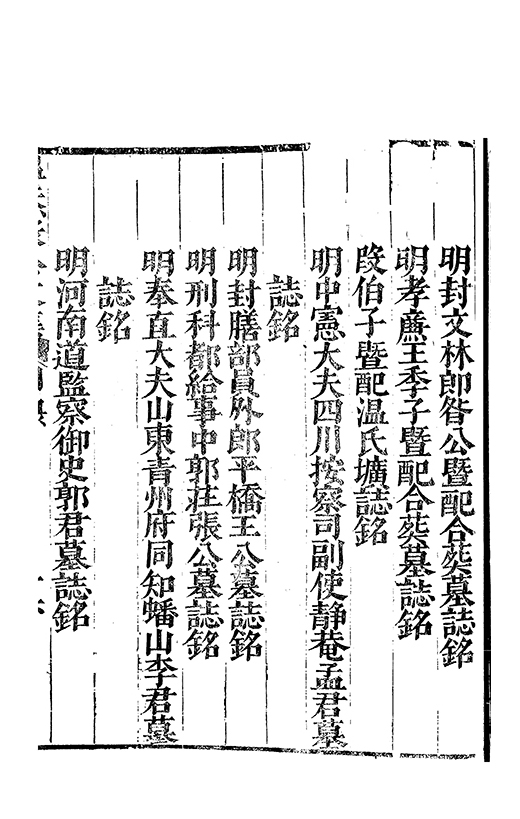 明封文林郎昝公暨配合葬墓誌銘
明孝廉王季子暨配合葬墓誌銘
段伯子暨配温氏壙誌銘
明中憲大夫四川按察司副使靜菴孟君墓
誌銘
明封膳部員外郎平橋王公墓誌銘
明刑科都給事中郭莊張公墓誌銘
明奉直大夫山東青州府同知蟠山李君墓
誌銘
明河南道監察御史郭君墓誌銘